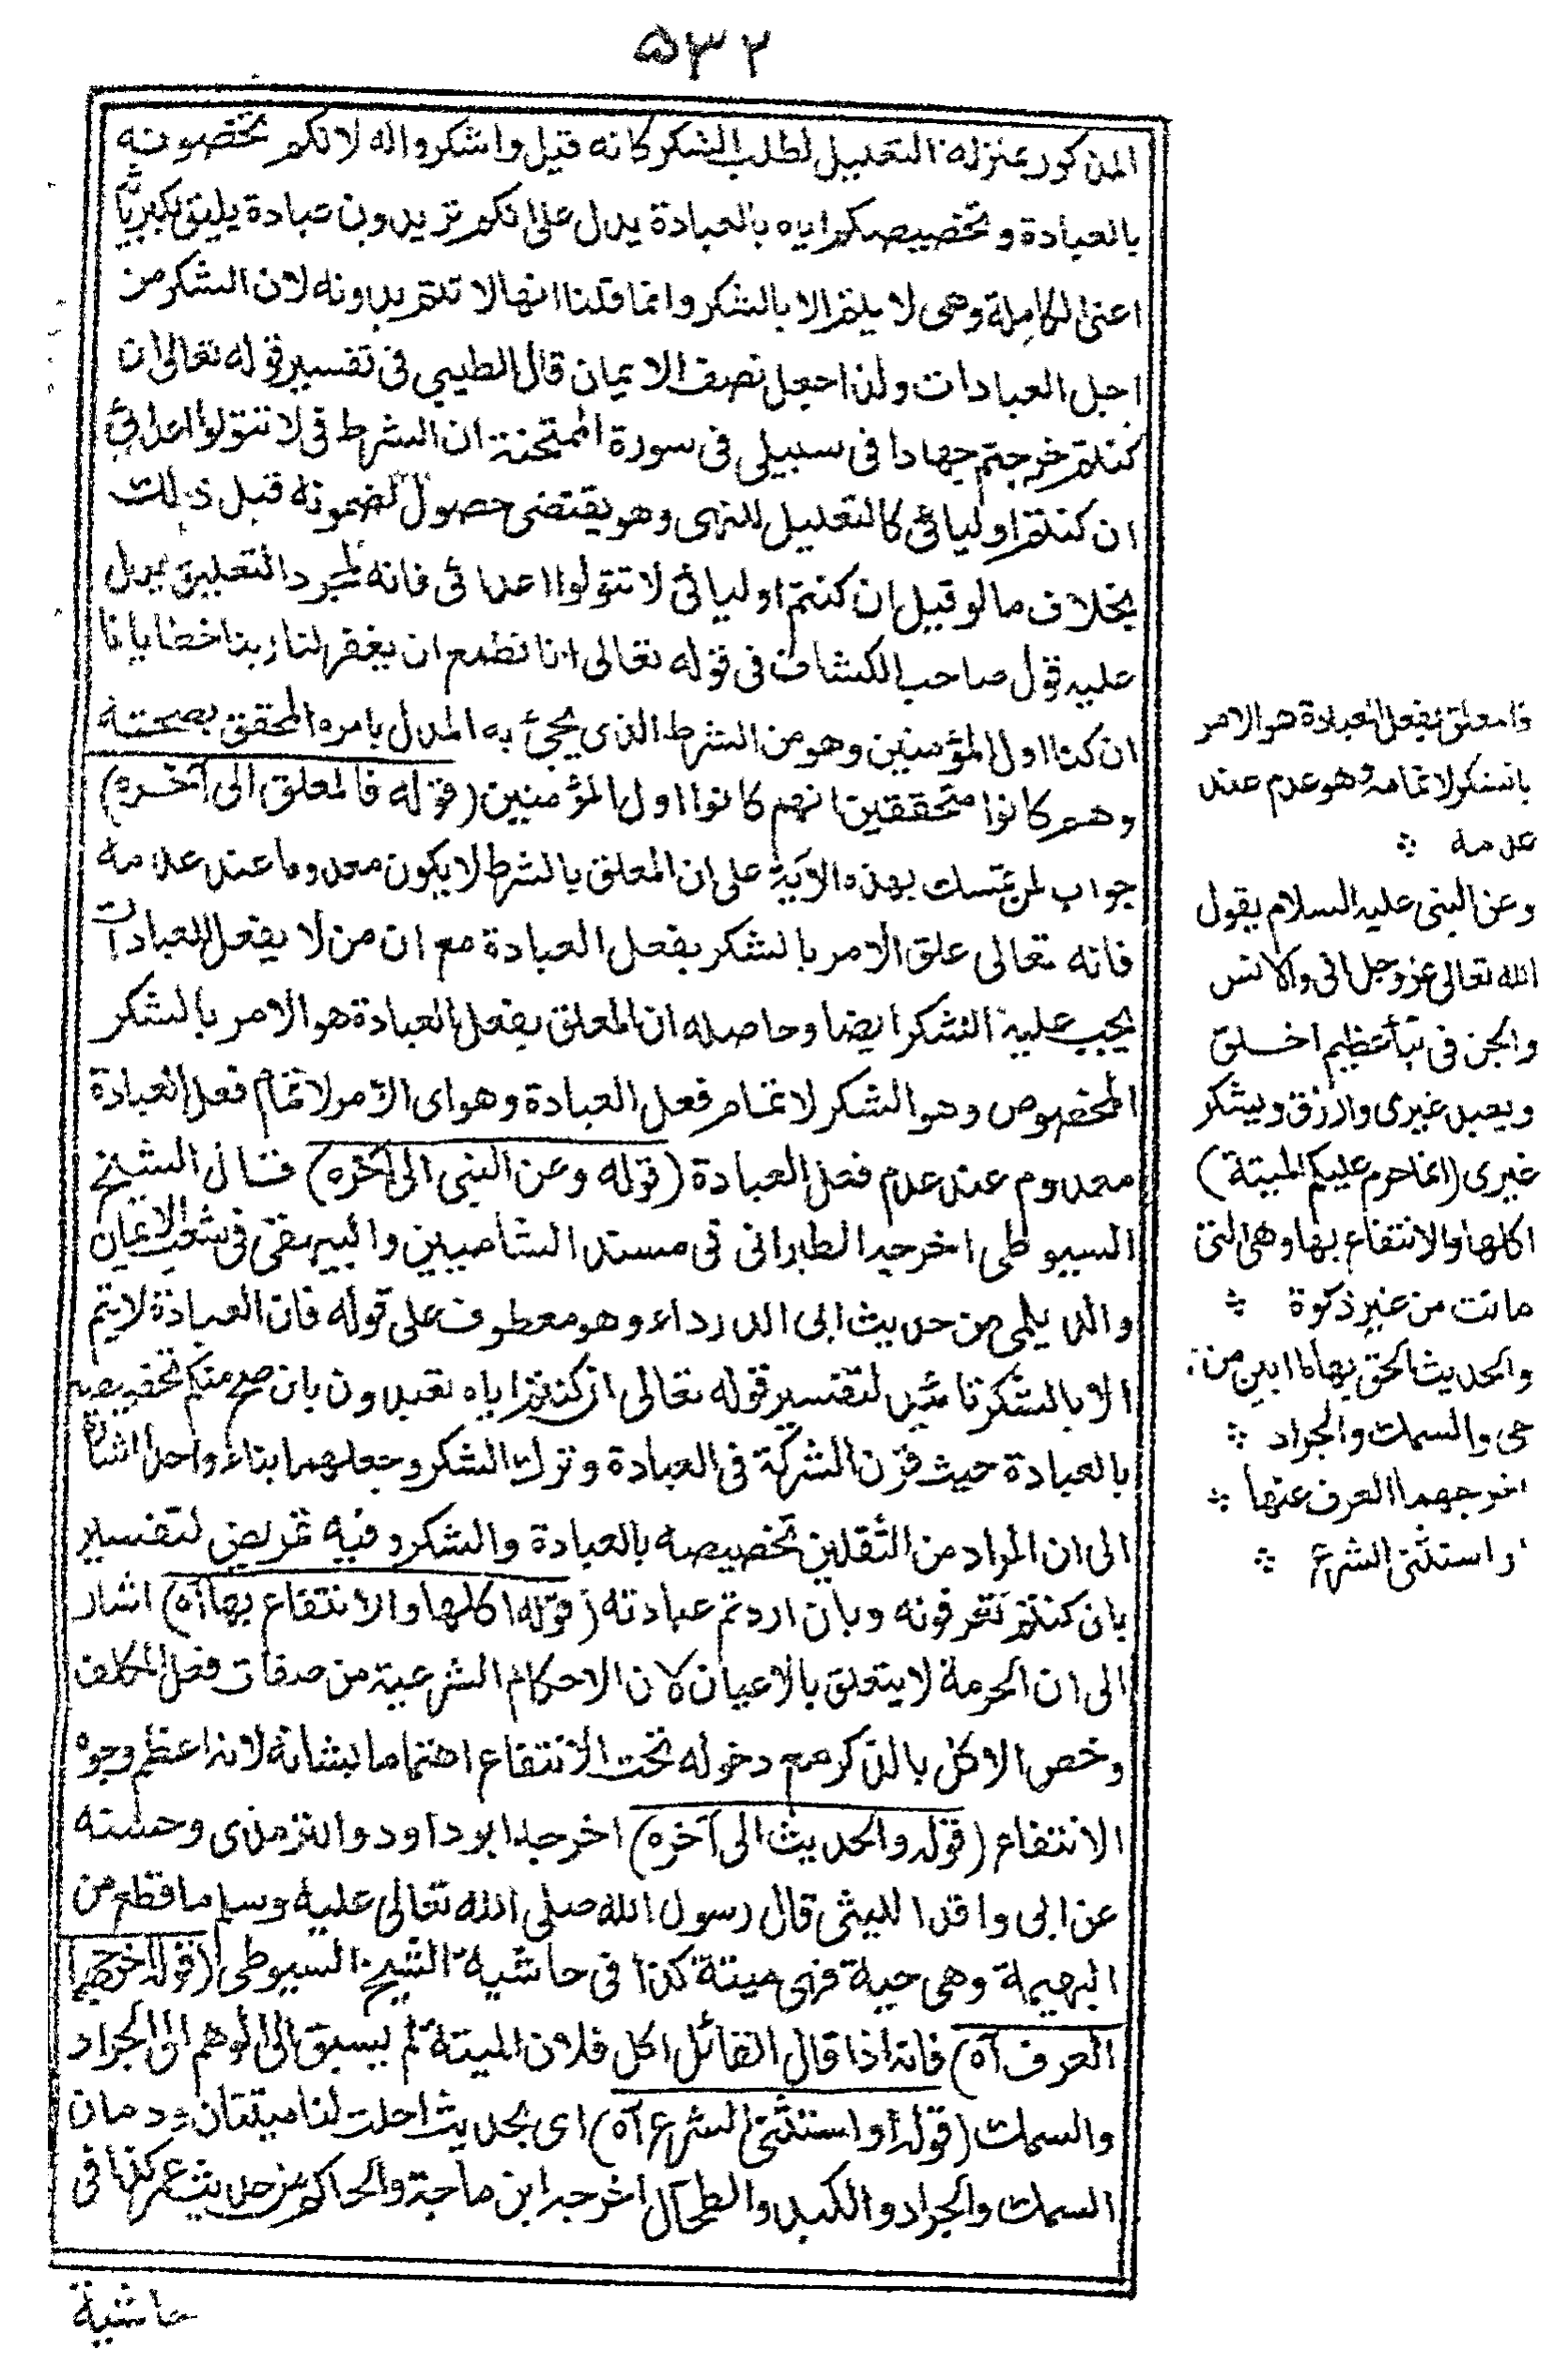 ٥٣٢
المذكور بمنزلة التعليل لطلب الشكر كانه قيل واشكروا له لانكم تخصونه
بالعبادة وتخصيصكم اياه بالعبادة يدل على انكم تريدون عبادة يليق بكبريائه
اعنى الكاملة وهى لا يتم الا بالشكر وانما قلنا انها لا تتم بدونه لان الشكر من
اجل العبادات ولذا جعل نصف الايمان قال الطيبى فى تفسير قوله تعالى ان
كنتم خرجتم جهادا فى سبيلى فى سورة الممتحنة ان الشرط فى لا تتولوا اعدائى
ان كنتم اوليائى كالتعليل للنهى وهو يقتضى حصول مضمونه قبل ذلك
بخلاف ما لو قيل ان كنتم اوليائى لا تتولوا اعدائى فانه لمجرد التعليق يدل
عليه قول صاحب الكشاف فى قوله تعالى انا نطمع ان يغفر لنا ربنا خطايانا
ان كنا اول المؤمنين وهو من الشرط الذى يجئ به المدل بامره المحقق بصحته
وهم كانوا متحققين انهم كانوا اول المؤمنين (قوله فالمعلق الى آخره)
جواب لمن تمسك بهذه الآية على ان المعلق بالشرط لا يكون معدوما عند عدمه
فانه تعالى علق الامر بالشكر بفعل العبادة مع ان من لا يفعل العبادات
يجب عليه الشكر ايضا وحاصله ان المعلق بفعل العبادة هو الامر بالشكر
المخصوص وهو الشكر لاتمام فعل العبادة وهو اى الامر لاتمام فعل العبادة
معدوم عند عدم فعل العبادة (قوله وعن النبى الى آخره) قال الشيخ
السيوطى اخرجه الطبرانى فى مسند الشاميين والبيهقى فى شعب الايمان
والديلمى من حديث ابى الدرداء وهو معطوف على قوله فان العبادة لا يتم
الا بالشكر تائيد لتفسير قوله تعالى ان كنتم اياه تعبدون بان صح منكم تخصيصه
بالعبادة حيث قرن الشركة فى العبادة وترك الشكر وجعلهما بناء واحدا اشارة
الى ان المراد من الثقلين تخصيصه بالعبادة والشكر وفيه تمريض لتفسير
بان كنتم تعرفونه وبان اردتم عبادته (قوله اكلها والانتفاع بها آه) اشار
الى ان الحرمة لا يتعلق بالاعيان لان الاحكام الشرعية من صفات فعل المكلف
وخص الاكل بالذكر مع دخوله تحت الانتفاع اهتماما بشانه لانه اعظم وجوه
الانتفاع (قوله والحديث الى آخره) اخرجه ابو داود والترمذى وحسنه
عن ابى واقد الليثى قال رسول الله صلى الله تعالى عليه وسلم ما قطع من
البهيمة وهى حية فهى ميتة كذا فى حاشية الشيخ السيوطى (قوله اخرجهما
العرف آه) فانه اذا قال القائل اكل فلان الميتة لم يسبق الى الوهم الى الجراد
والسمك (قوله او استثنى الشرع آه) اى بحديث احلت لنا ميتتان ودمان
السمك والجراد والكبد والطحال اخرجه ابن ماجة والحاكم من حديث عمر كذا فى
حاشية
فا معلق بفعل العبادة هو الامر
بالشكر لاتمامه وهو عدم عند
عدمه
وعن النبى عليه السلام يقول
الله تعالى عز وجل انى والانس
والجن فى نبأ عظيم اخلق
ويعبد غيرى وارزق ويشكر
غيرى (انما حرم عليكم الميتة)
اكلها والانتفاع بها وهى التى
ماتت من غير ذكوة
والحديث الحق بها ما ابين من
حى والسمك والجراد
اخرجهما العرف عنها
او استثنى الشرع